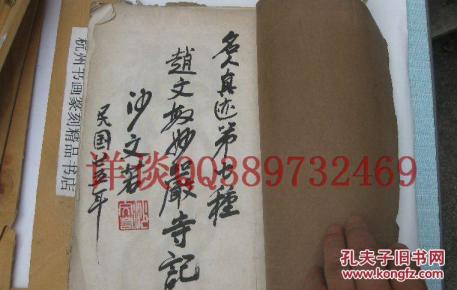 名人真迹第七種
趙文敏妙嚴寺記
沙文若
民国廿五年
杭州书画篆刻精品书店
详谈QQ889732469
孔夫子旧书网
kongfz.com